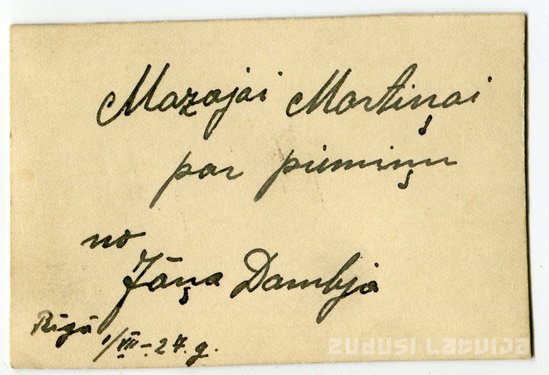 Mazajai Martiņai
par piemiņu
no
Jāņa Dambja
Rīgā
1/VII-27.g.
ZUDUSI LATVIJA